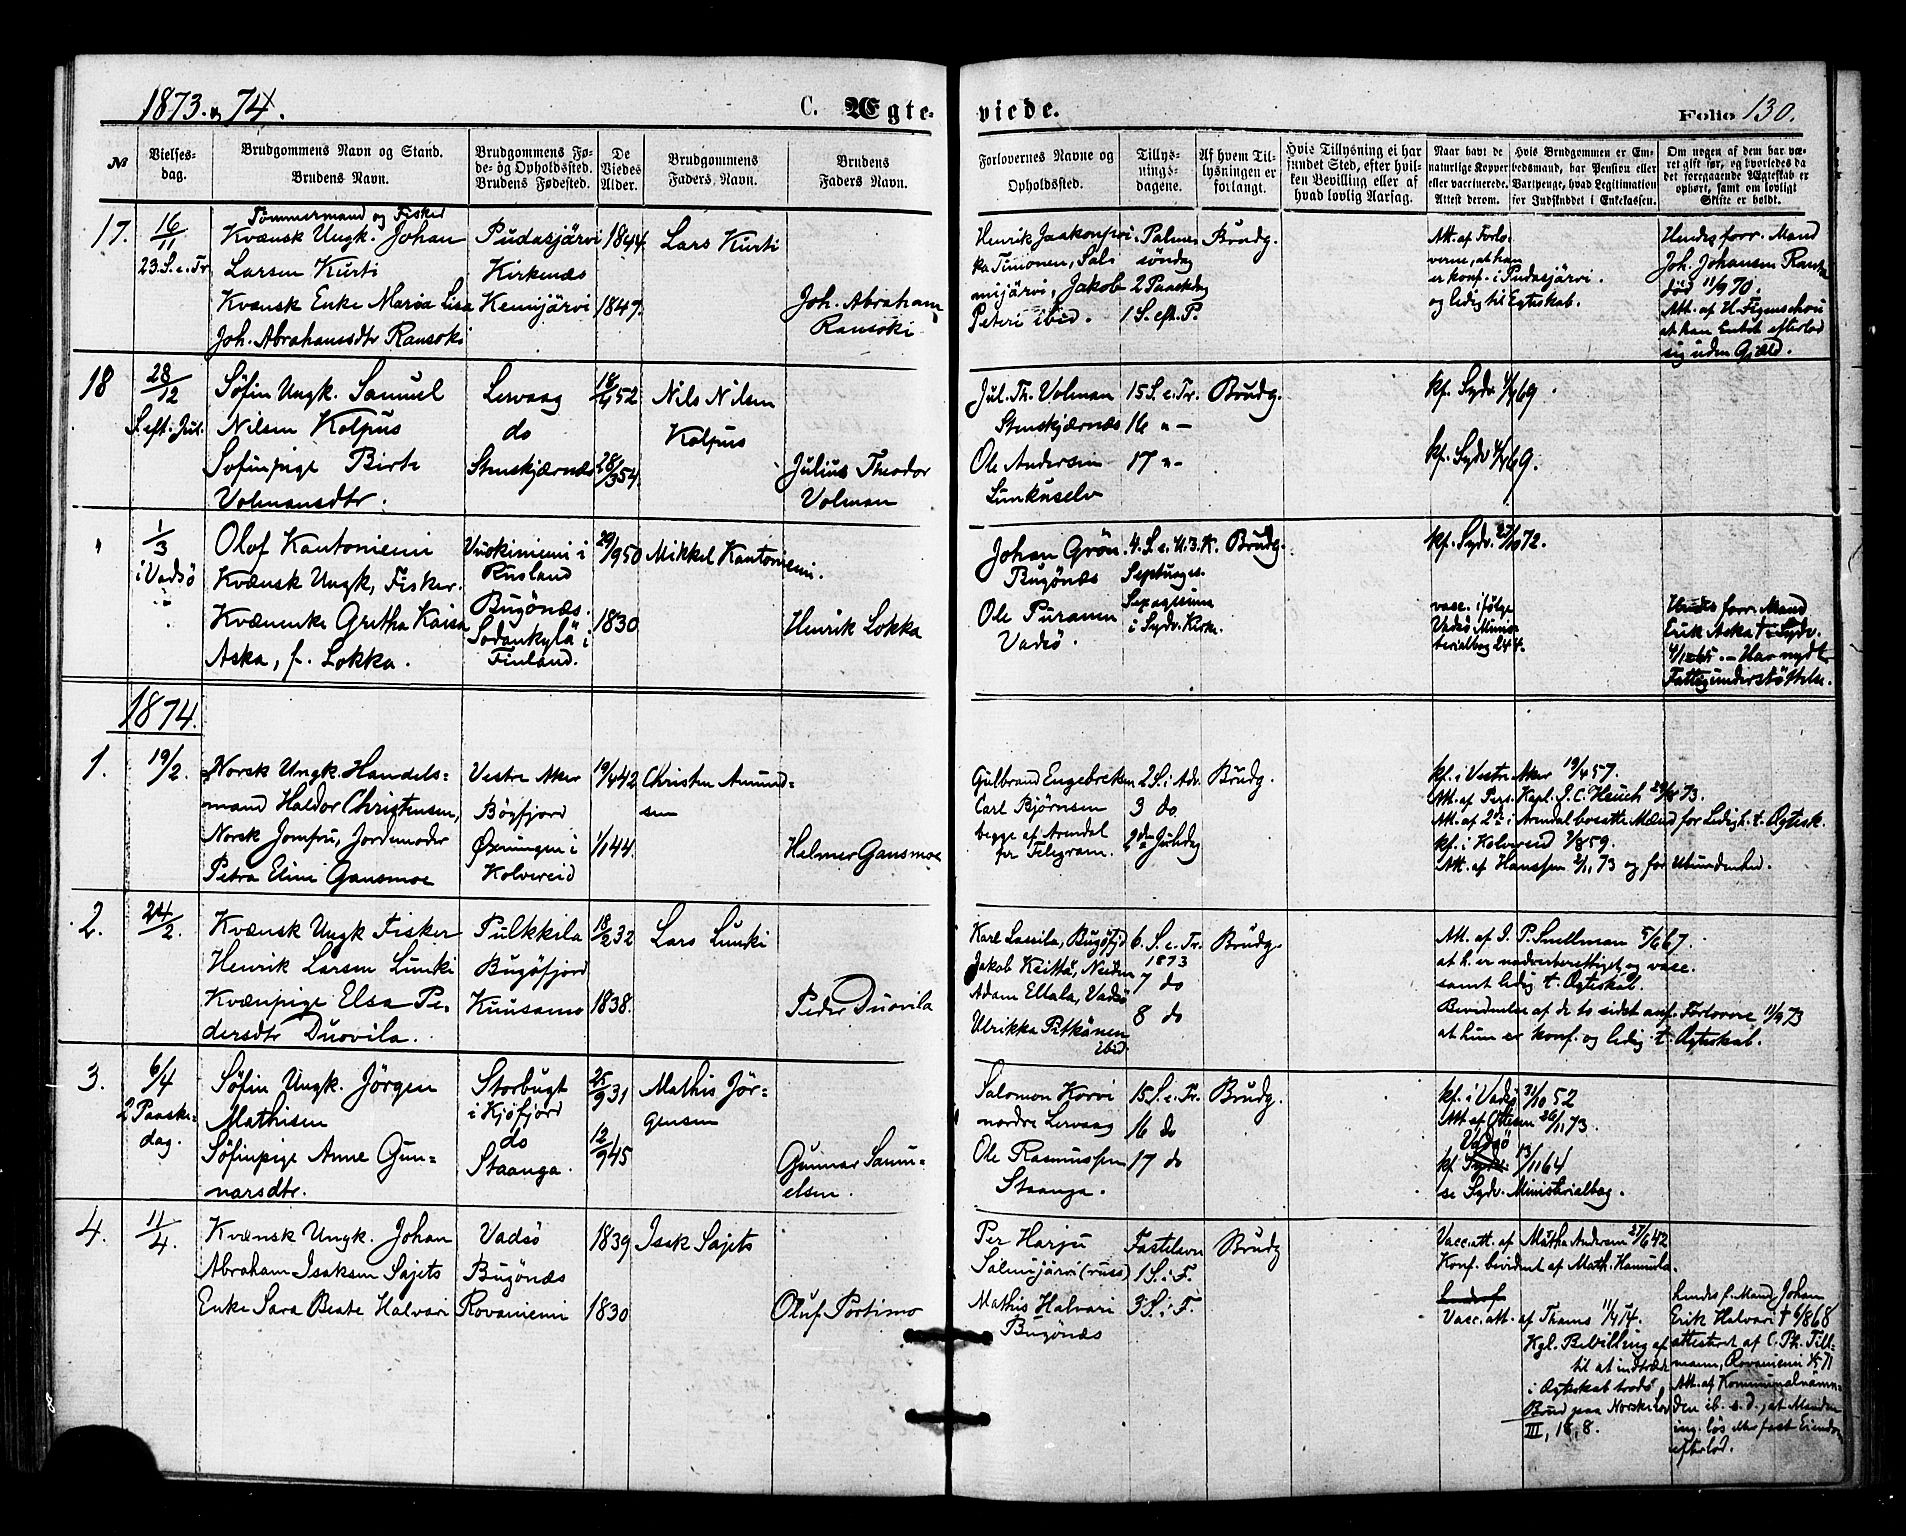 1873 og 74.
C. Ægteviede.
Folio 130.
No
Vielsesdag.
Brudgommens Navn og Stand.
Brudens Navn.
Brudgommens Føde- og Opholdssted.
Brudens Fødested.
De Viedes Alder.
Brudgommens Faders Navn.
Brudens Faders Navn.
Forlovernes Navne og Opholdssted.
Tillysningsdagene.
Af hvem Tillysningen er forlangt.
Hvis Tillysning ei har fundet Sted, efter hvilken Bevilling eller af hvad lovlig Aarsag.
Naar havt de naturlige Kopper eller vaccinerede. Attest derom.
Hvis Brudgommen er Embedsmand, har Pension eller Vartpenge, hvad Legitimation for Indskuddet i Enkekassen.
Om nogen af dem har været gift før, og hvorledes da det foregaaende Ægteskab er ophørt, samt om lovligt Skifte er holdt.
17.
16/11
23. S. e. Tr.
Tømmermand og Fisker
Kvænsk Ungk. Johan
Larsen Kurti
Kvænsk Enke Maria Lisa
Joh. Abrahamsdtr Ransoki
Pudasjärvi
Kirkenæs
Kemijärvi
1844.
1847.
Lars Kurti
Joh. Abraham
Ransoki
Henrik Jaakonpoi-
ka Timonen, Sal-
mijärvi, Jakob
Peteri ibid.
Palme-
søndag
2 Paaskdag
1 S. eft. P.
Brudg.
Att. af Forlo-
verne, at han
er konf. i Pudasjärvi.
og ledig til Egteskab.
Hendes forr. Mand
Joh. Johansen Ranta
död 11/9 70.
Att. af H. Figenschou
at han Intet efterlod
sig uden Gjæld.
18
28/12
S. eft. Jul.
Söfin Ungk. Samuel
Nilsen Kolpus
Sofinpige Birte
Volmansdtr.
Lervaag
do
Stenskjærnæs
52
28/3 54.
Nils Nilsen
Kolpus
Julius Theodor
Volman
Jul. Th. Volman
Stenskjærnæs
Ole Andersen
Lunkuselv
15 S. e. Tr.
16 " -
17 " -
Brudg.
kf. Sydv. 69.
kf. Sydv 69.
"
1/3
i Vadsö
Olof Kantoniemi
Kvænsk Ungk, Fisker.
Kvænenke Gretha Kaisa
Aska, f. Lokka.
Vuokiniemi i
Rusland
Bugönæs.
Sodankylä i
Finland.
29/9 50
1830
Mikkel Kantoniemi.
Henrik Lokka
Johan Grön
Bugönæs
Ole Puranen
Vadsö.
4. S. e. H. 3. K.
Septuages.
Sexagesima
i Sydv. Kirke.
Brudg.
kf. Sydv. 27/10 72.
vacc. ifølge
Vadsø Minis-
terialbog
Hendes forr. Mand
Erik Aska † i Sydv.
65. - Har nydt
Fattigunderstöttelse.
1874.
1.
19/2.
Norsk Ungk. Handels-
mand Haldor Christensen,
Norsk Jomfru, Jordemoder
Petra Elini Gansmoe
Vestre Aker
Bögfjord
Øxeningen i
Kolvereid
19/4 42
1/1 44.
Christen Amund-
sen
Helmer Gansmoe
Gulbrand Engebretsen
Carl Bjørnsen
begge af Arendal
per Telegram.
2 S. i Adv.
3 do
2den Juledag
Brudg.
kf. i Vestre Aker 19/4 57.
Att. af Pers. Kapl. J. C. Heuch 73.
Att. af 2de i Arendal bosatte Mænd for Ledigh. t. Ægtesk.
kf. i Kolvereid 59.
Att. af Hanssen 73 og for Ubundenhed.
2.
24/2.
Kvænsk Ungk Fisker
Henrik Larsen Lunki
Kvænpige Elsa Pe-
dersdtr Duovila.
Pulkkila
Bugöfjord
Kuusamo
18/2 32
1838.
Lars Lunki
Peder Duovila
Karl Lassila, Bugöfjd
Jakob Keittä, Neiden
Adam Ellala, Vadsö
Ulrikka Pitkänen
ibid.
6. S. e. Tr.
1873
7 do
8 do
Brudg.
Att. af J. P. Snellman 5/6 67.
at h. er nadverberettiget og vacc.
samt ledig t. Ægteskab.
Bevidnelse af de to sidst anf. Forlovere 11/9 73
at hun er konf. og ledig t. Ægteskab.
3.
6/4
2 Paaske-
dag.
Söfin Ungk. Jörgen
Mathisen
Söfinpige Anne Gun-
narsdtr.
Storbugt
i Kjöfjord
do
Staanga.
25/9 31
12/9 45
Mathis Jör-
gensen
Gunnar Samu-
elsen.
Salomon Korvi
nordre Lervaag
Ole Rasmussen
Staanga.
15 S. e. Tr.
16 do
17 do
Brudg.
kf. i Vadsö 31/10 52
Att. af Olesen 26/11 73.
Vadsö
kf. Sydv. 13/11 64
se Sydv. Ministerialbog.
4.
11/4
Kvænsk Ungk. Johan
Abraham Isaksen Sajets
Enke Sara Beate Halvari
Vadsö
Bugönæs
Rovaniemi
1839
1830
Isak Sajets
Oluf Portimo
Per Harju
Salmijärvi (russ)
Mathis Halvari
Bugönæs
Fastelavn
1 S. i F.
3 S. i F.
Brudg
Vacc. att. af Mätha Andersen 27/6 42
Konf. bevidnet af Math. Hannula.
Vacc. att. af Thams
Kgl. Bevilling af
til at indtræde
i Ægteskab trods
Brud paa Norske Lov
III, 18, 8.
hendes f. Mand Johan
Erik Halvari † 6/8 68
attesteret af C. Ph. Till-
mann, Rovaniemi 71
Att. af Kommunalnämn-
den ib. s. d., at Manden
ing. lös eller fast Eiendom
efterlod.